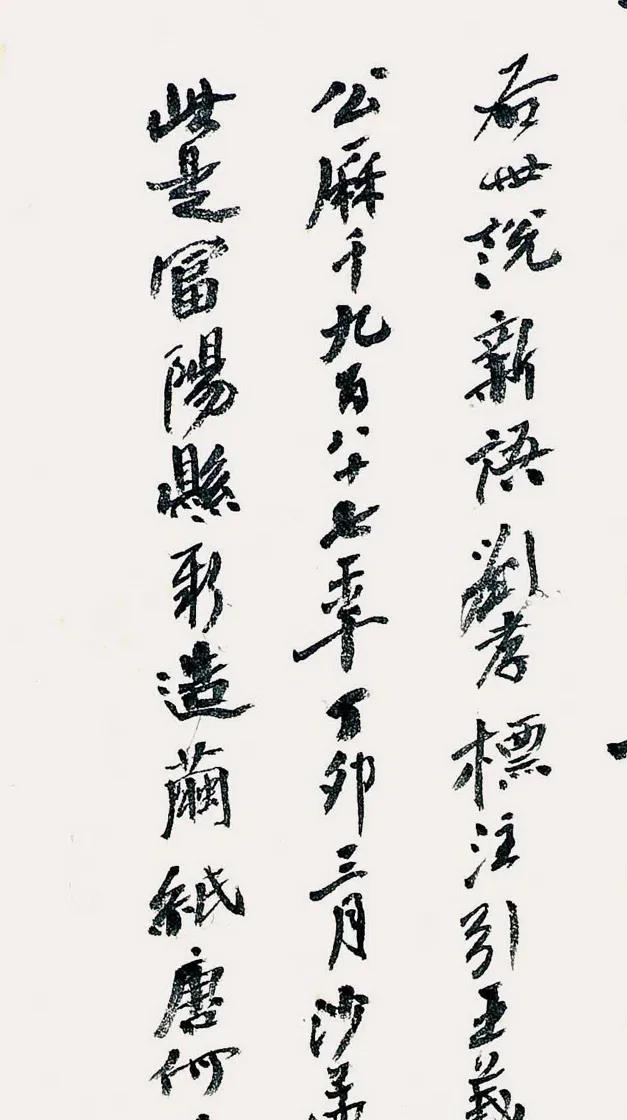 右世說新語劉孝標注引王羲
公厤千九百八十七年丁卯三月沙孟
此是富陽縣新造繭紙唐何